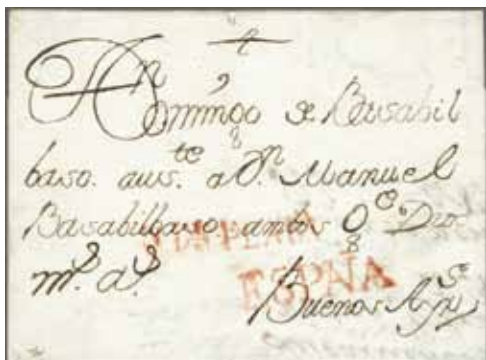 Dn
Domingo de Basabil
baso. aus.te a Dn. Manuel
Basabilbaso ambos
ms. as.
ESPÑA
Buenos Ays